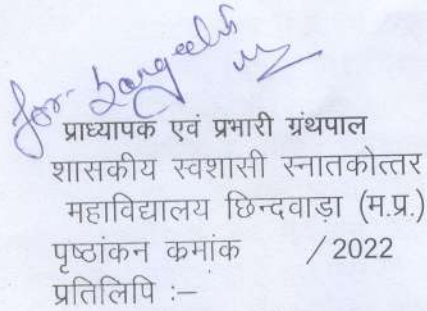 for.
प्राध्यापक एवं प्रभारी ग्रंथपाल
शासकीय स्वशासी स्नातकोत्तर
महाविद्यालय छिन्दवाड़ा (म.प्र.)
पृष्ठांकन कमांक / 2022
प्रतिलिपि :–